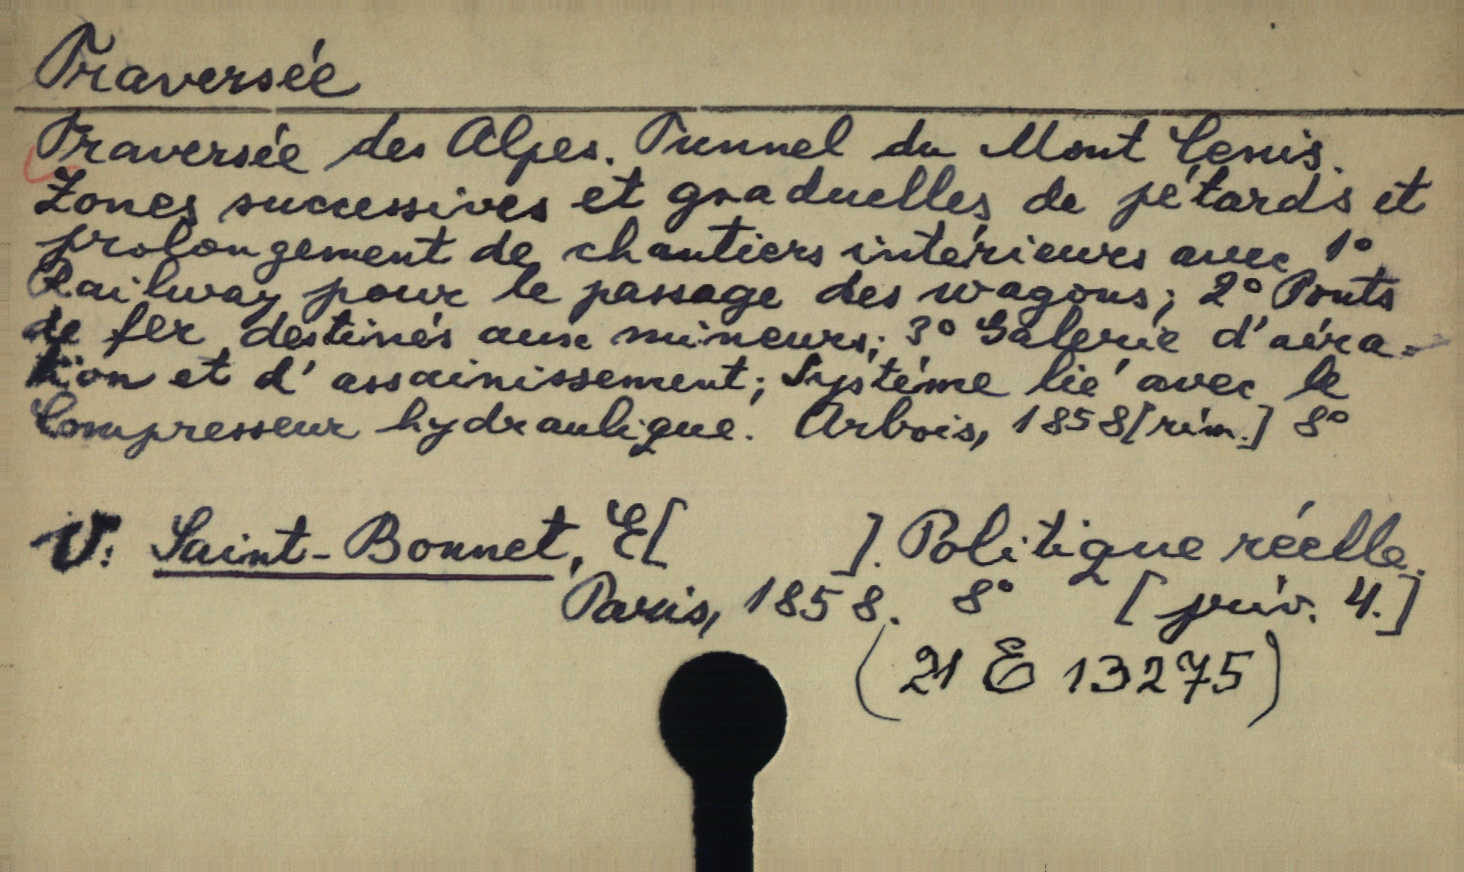 Traversée
Traversée des Alpes. Tunnel du Mont Cenis.
Zones successives et graduelles de pétards et
prolongement de chantiers intérieurs avec 1°
Railway pour le passage des wagons; 2° Ponts
de fer destinés aux mineurs; 3° Galerie d'aéra-
tion et d'assainissement; Système lié avec le
Compresseur hydraulique. Arbois, 1858 [rim.] 8°
V: Saint-Bonnet, E[ ]. Politique réelle.
Paris, 1858. 8° [priv. 4.]
(21 E 13275)